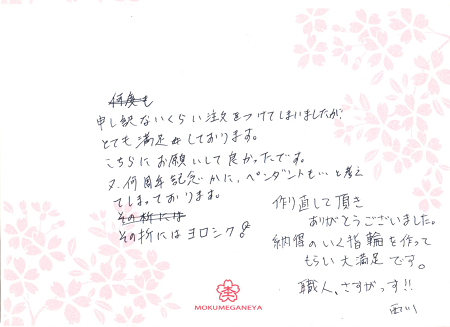 何度も
申し訳ないくらい注文をつけてしまいましたが、
とても満足しております。
こちらにお願いして良かったです。
又、何周年記念かに、ペンダントも…と考え
てしまっております。
その折には
その折にはヨロシク!
作り直して頂き
ありがとうございました。
納得のいく指輪を作って
もらい大満足です。
職人、さすがっす!!
西川
MOKUMEGANEYA